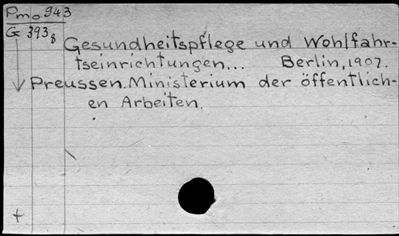 Pmo943
G 393g
Gesundheitspflege und Wohlfahr-
tseinrichtungen... Berlin, 1907.
Preussen. Ministerium der öffentlich-
en Arbeiten.